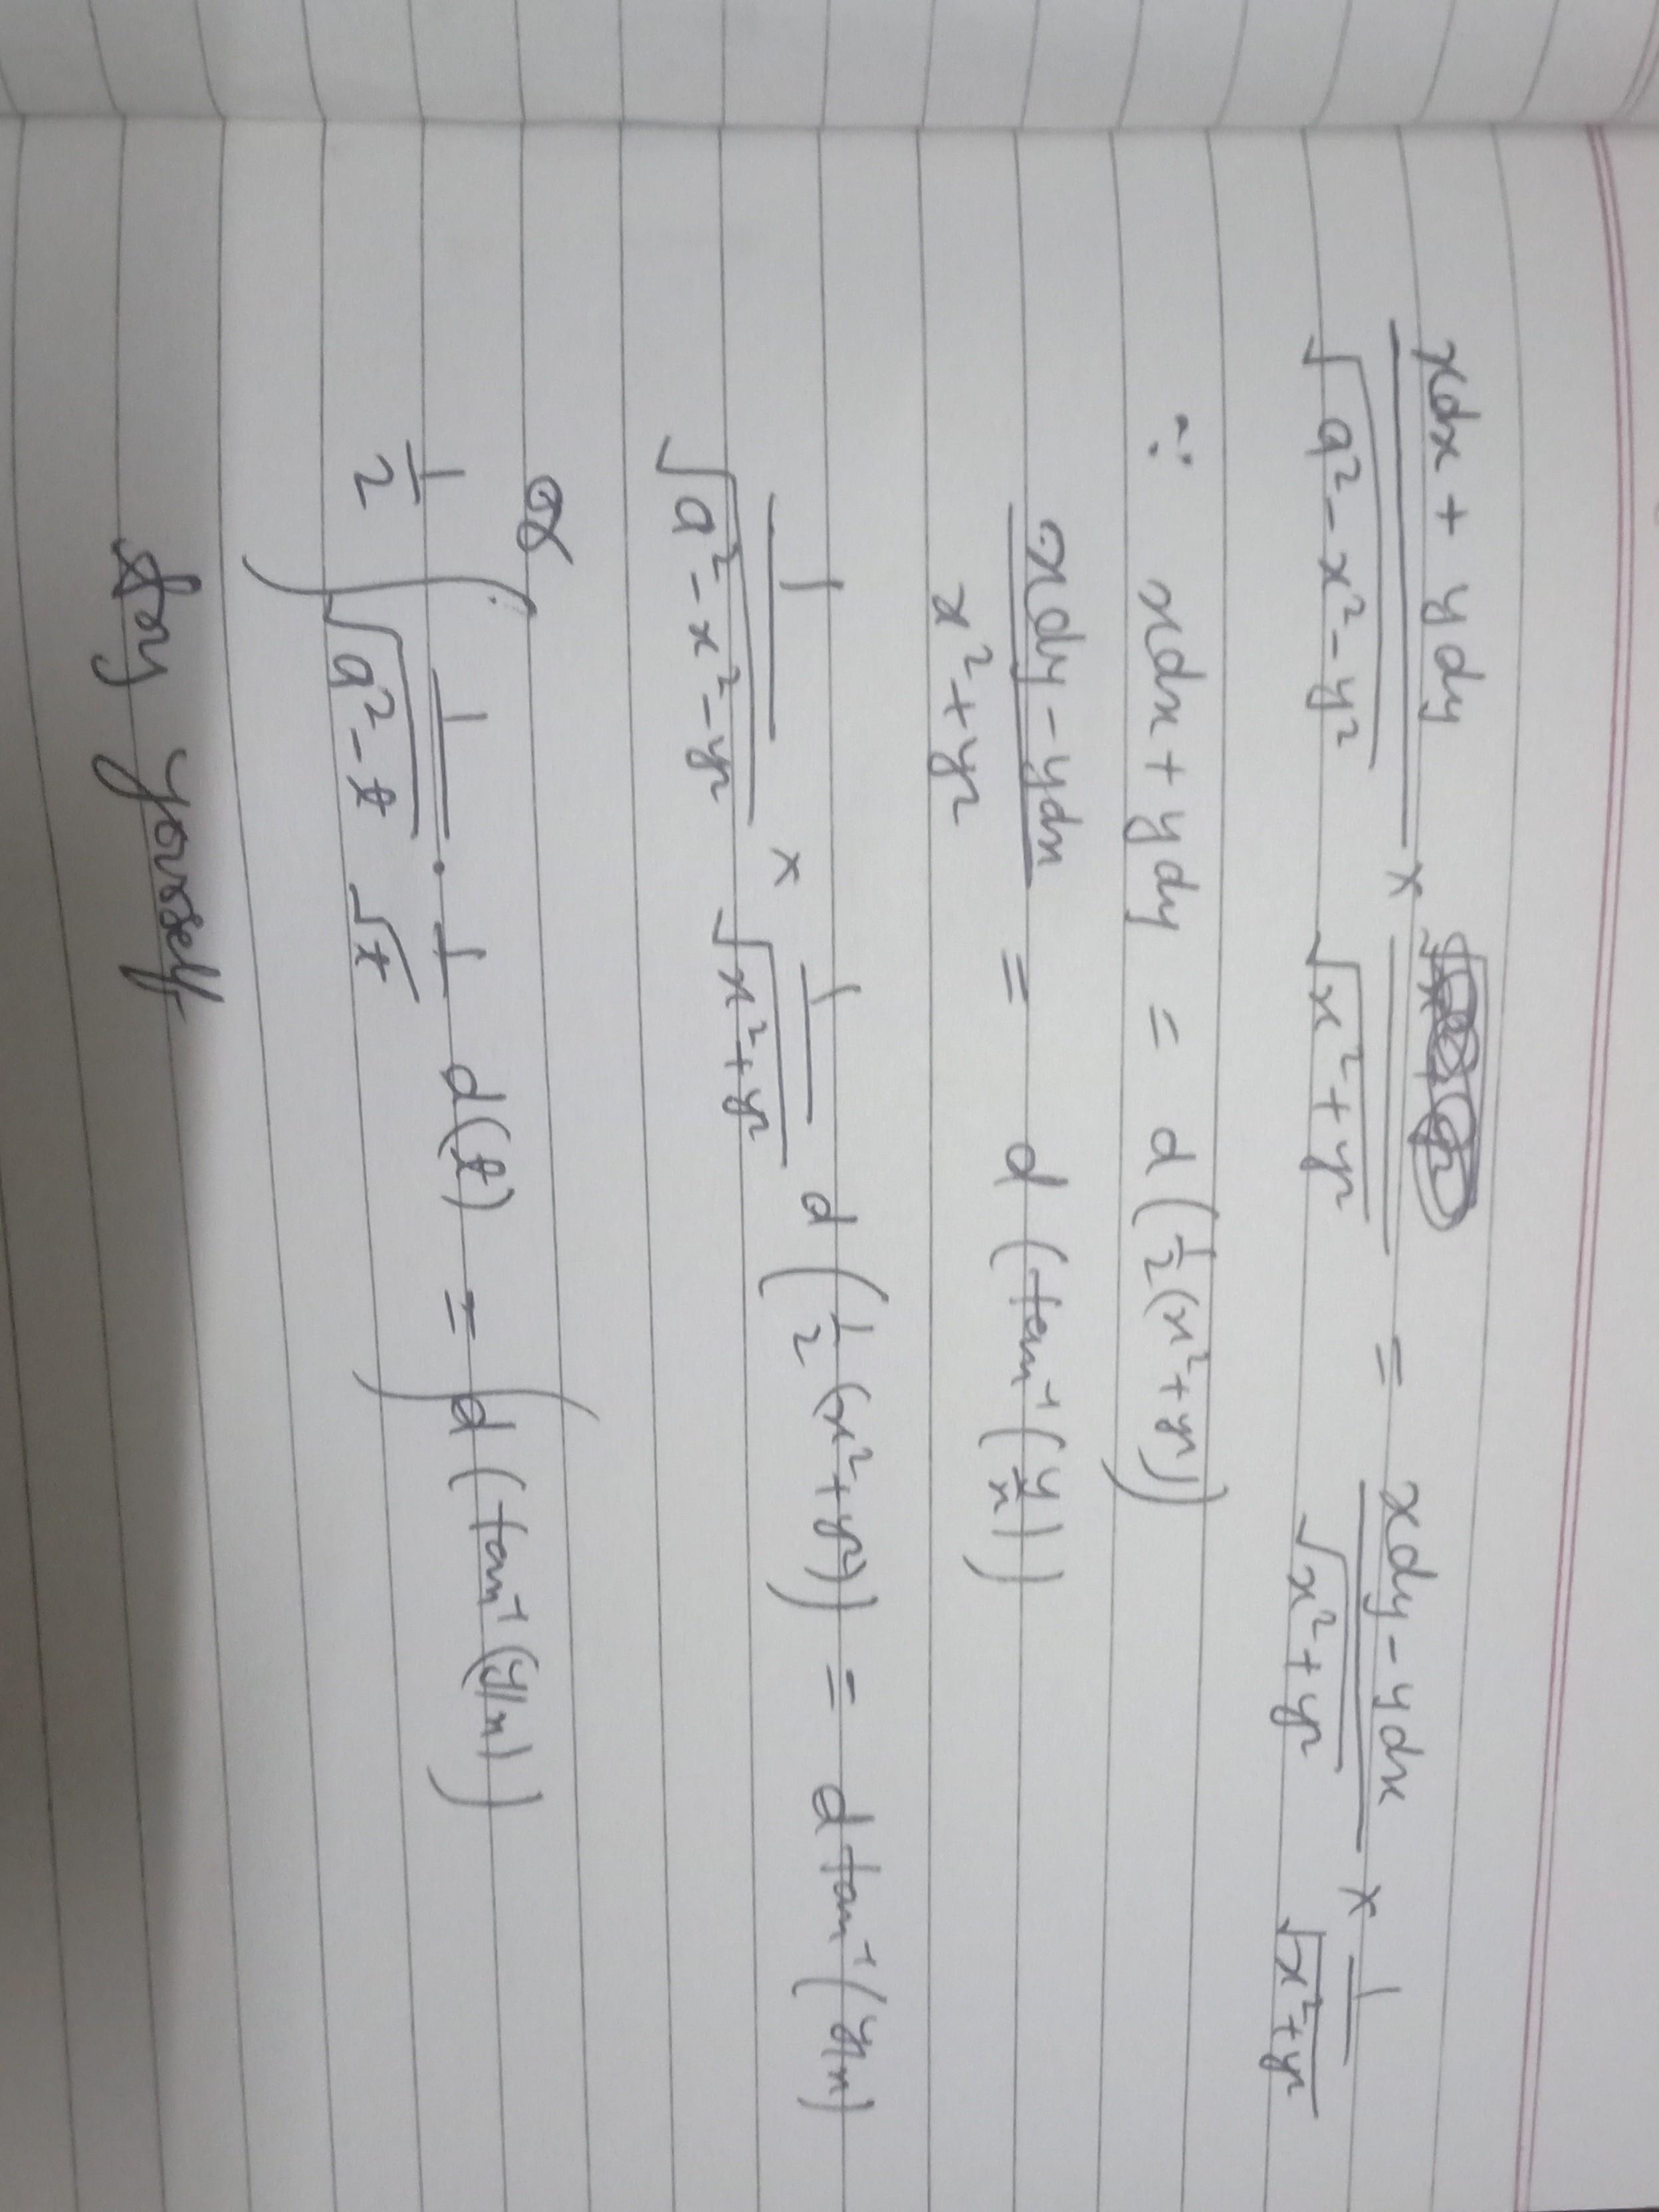 (xdx + ydy)/√(a² - x² - y²) × 1/√(x² + y²) = (xdy - ydx)/√(x² + y²) × 1/√(x² + y²)
∵ xdx + ydy = d(½(x² + y²))
(xdy - ydx)/(x² + y²) = d(tan⁻¹(y/x))
1/√(a² - x² - y²) × 1/√(x² + y²) d(½(x² + y²)) = d tan⁻¹(y/x)
or
½ ∫ 1/√(a² - t) · 1/√t d(t) = ∫ d(tan⁻¹(y/x))
try yourself